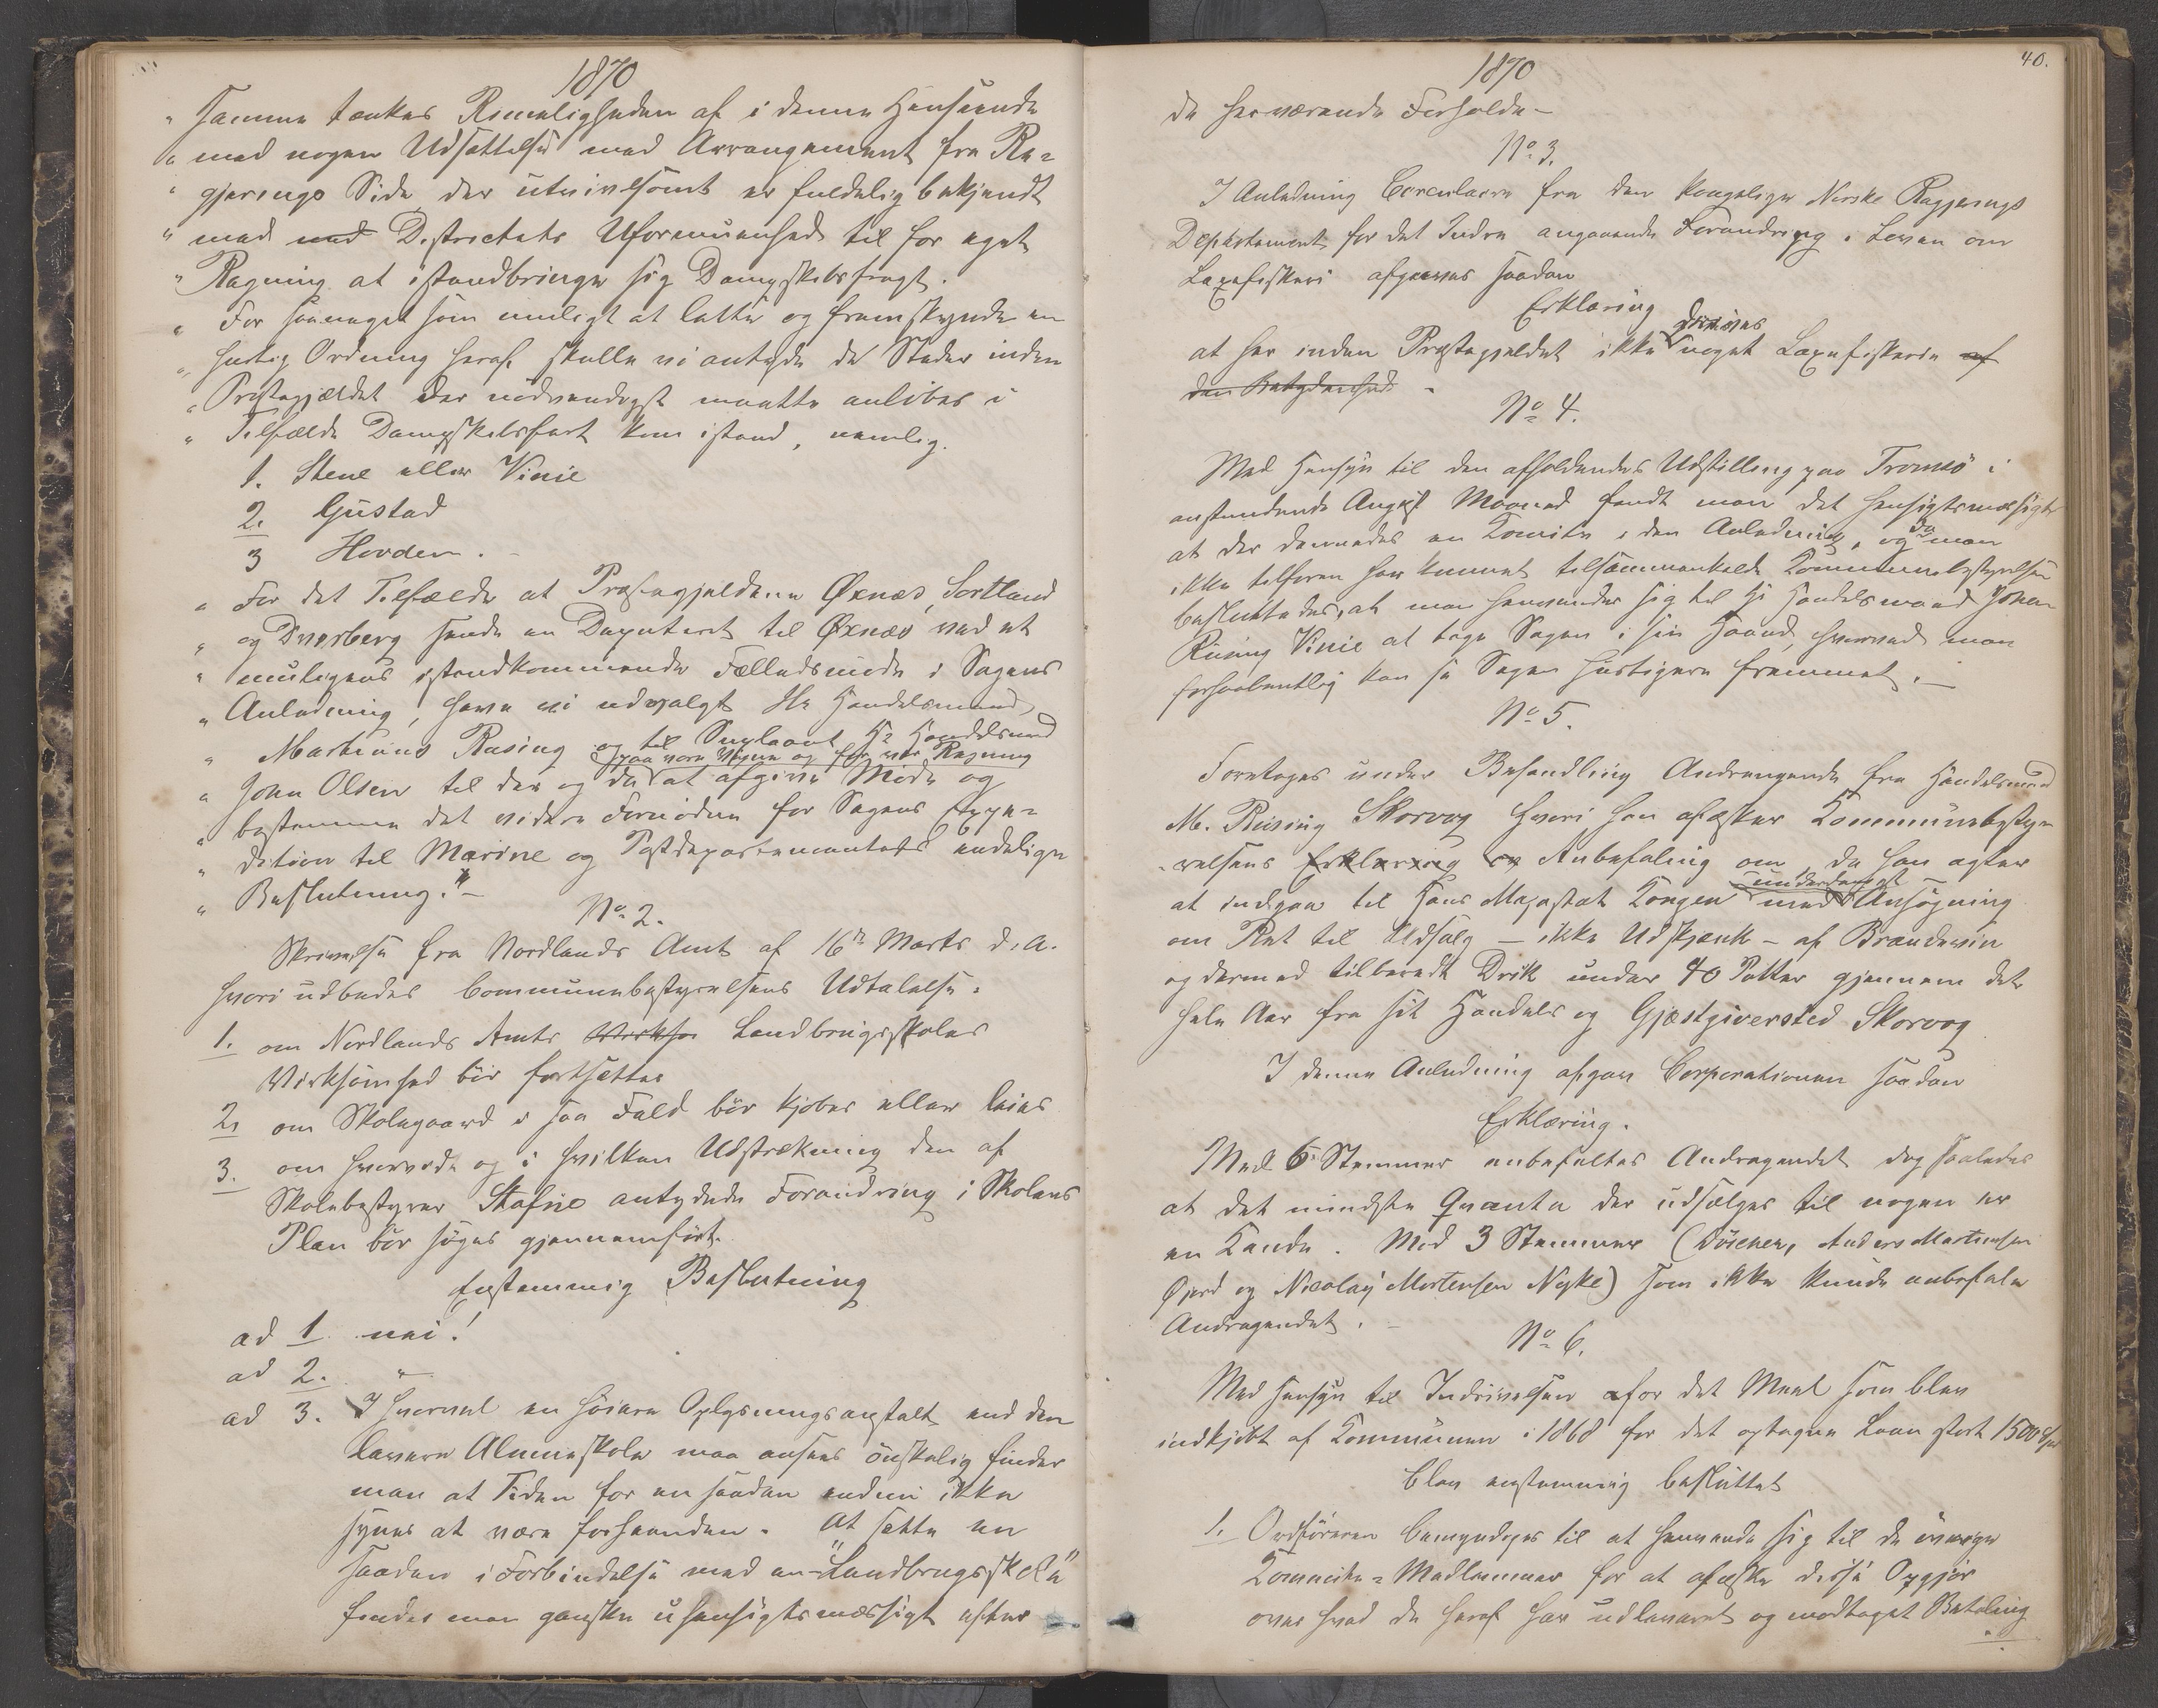 1870
" samme tænkes Rimeligheden af i denne Henseende
" med nogen Udsættelse med Arrangement fra Re=
" gjerings Side, der utvivlsomt er fuldelig bekjendt
" med med Districtets Uformuenhed til for eget
" Regning at istandbringe sig Dampskibsfragt.
" For saameget som muligt at lette og fremskynde en
" hurtig Ordning heraf skulle vi antyde de Steder inden
" Præstegjældet der nødvendigst maatte anløbes i
" Tilfælde Dampskibsfart kom istand, nemlig.
1. Stene eller Vinie
2. Gustad
3 Hovden. -
" For det Tilfælde at Præstegjeldene Øxnæs, Sortland
" og Dverberg sende en Deputeret til Øxnæs ved et
" muligens istandkommende Fælledsmøde i Sagens
" Anledning, have vi udvalgt Hr Handelsmand
" Martinus Rusing og til Supleant Hr Handelsmand
paa vore Vegne og for vor Regning
" John Olsen til der og da at afgive Møde og
" bestemme det videre Fornødne for Sagens Expe=
" dition til Marine og Postdepartementets endelige
" Beslutning." -
No 2.
Skrivelse fra Nordlands Amt af 16de Marts d. A.
hvori udbedes Communebestyrelsens Udtalelse.
1. om Nordlands Amts Landbrugsskoles
Virksomhed bør fortsættes
2. om Skolegaard i saa Fald bør kjøbes eller leies
3. om hvorvidt og i hvilken Udstrækning den af
Skolebestyrer Stafne antydede Forandring i Skolens
Plan bør søges gjennemført.
Enstemmig Beslutning
ad 1 nei!
ad 2. "
ad 3. I hvorvel en høiere Oplysningsanstalt end den
lavere Almueskole maa ansees ønskelig finder
man at Tiden for en saadan endnu ikke
synes at være forhaanden. At sætte en
saadan i Forbindelse med en "Landbrugsskole"
findes man ganske uhensigtsmæssigt efter
40.
1870
de herværende Forholde -
No 3.
I Anledning Circulære fra den Kongelige Norske Regjerings
Departement for det Indre angaaende Forandring i Loven om
Laxefiskeri afgaves saadan
Erklæring
drives
at her inden Præstegjeldet ikke noget Laxefiskerie af
den Betydenhed -
No 4.
Med Hensyn til den afholdendes Udstilling paa Tromsø i
anstundende August Maaned fandt man det hensigtsmæsigt
at der dannedes en Komite i den Anledning, og da man
ikke tilforn har kunnet tilsammenkalde Kommunebestyrelsen
besluttedes, at man henvender sig til Hr Handelsmand Johan
Rüsing Vinie at tage Sagen i sin Haand, hvorved man
forhaabentlig kan se Sagen hurtigere fremmet. -
No 5.
Foretoges under Behandling Andragende fra Handelsmand
M. Rüsing Skorvog hvori han afæsker Kommunebestyr
relsens Erklæring og Anbefaling om, da han agter
underdanigst
at indgaa til Hans Majestæt Kongen med Ansøgning
om Ret til Udsalg - ikke Udskjænk - af Brændeviin
og dermed tilberedt Drik under 40 Potter gjennem det
hele Aar fra sit Handels og Gjæstgiversted Skorvog
I denne Anledning afgav Corporationen saadan
Erklæring.
Med 6 Stemmer anbefaltes Andragendet dog saaledes
at det mindste Qvanta der udsælges til nogen er
en Kande. Med 3 Stemmer ( Anders Martinsen
og Nicolay Mortensen Nyke) som ikke kunde anbefale
Andragendet. -
No 6.
Med Hensyn til Inddrivelsen afor det Meel som blev
indkjøbt af Kommunen i 1868 for det optagne Laan stort 1500 Spd
blev enstemmig besluttet
1. Ordføreren bemyndiges til at henvende sig til de øvrige
Kommite=Medlemmer for at afæske disse Opgjør
over hvad de heraf har udleveret og modtaget Betaling